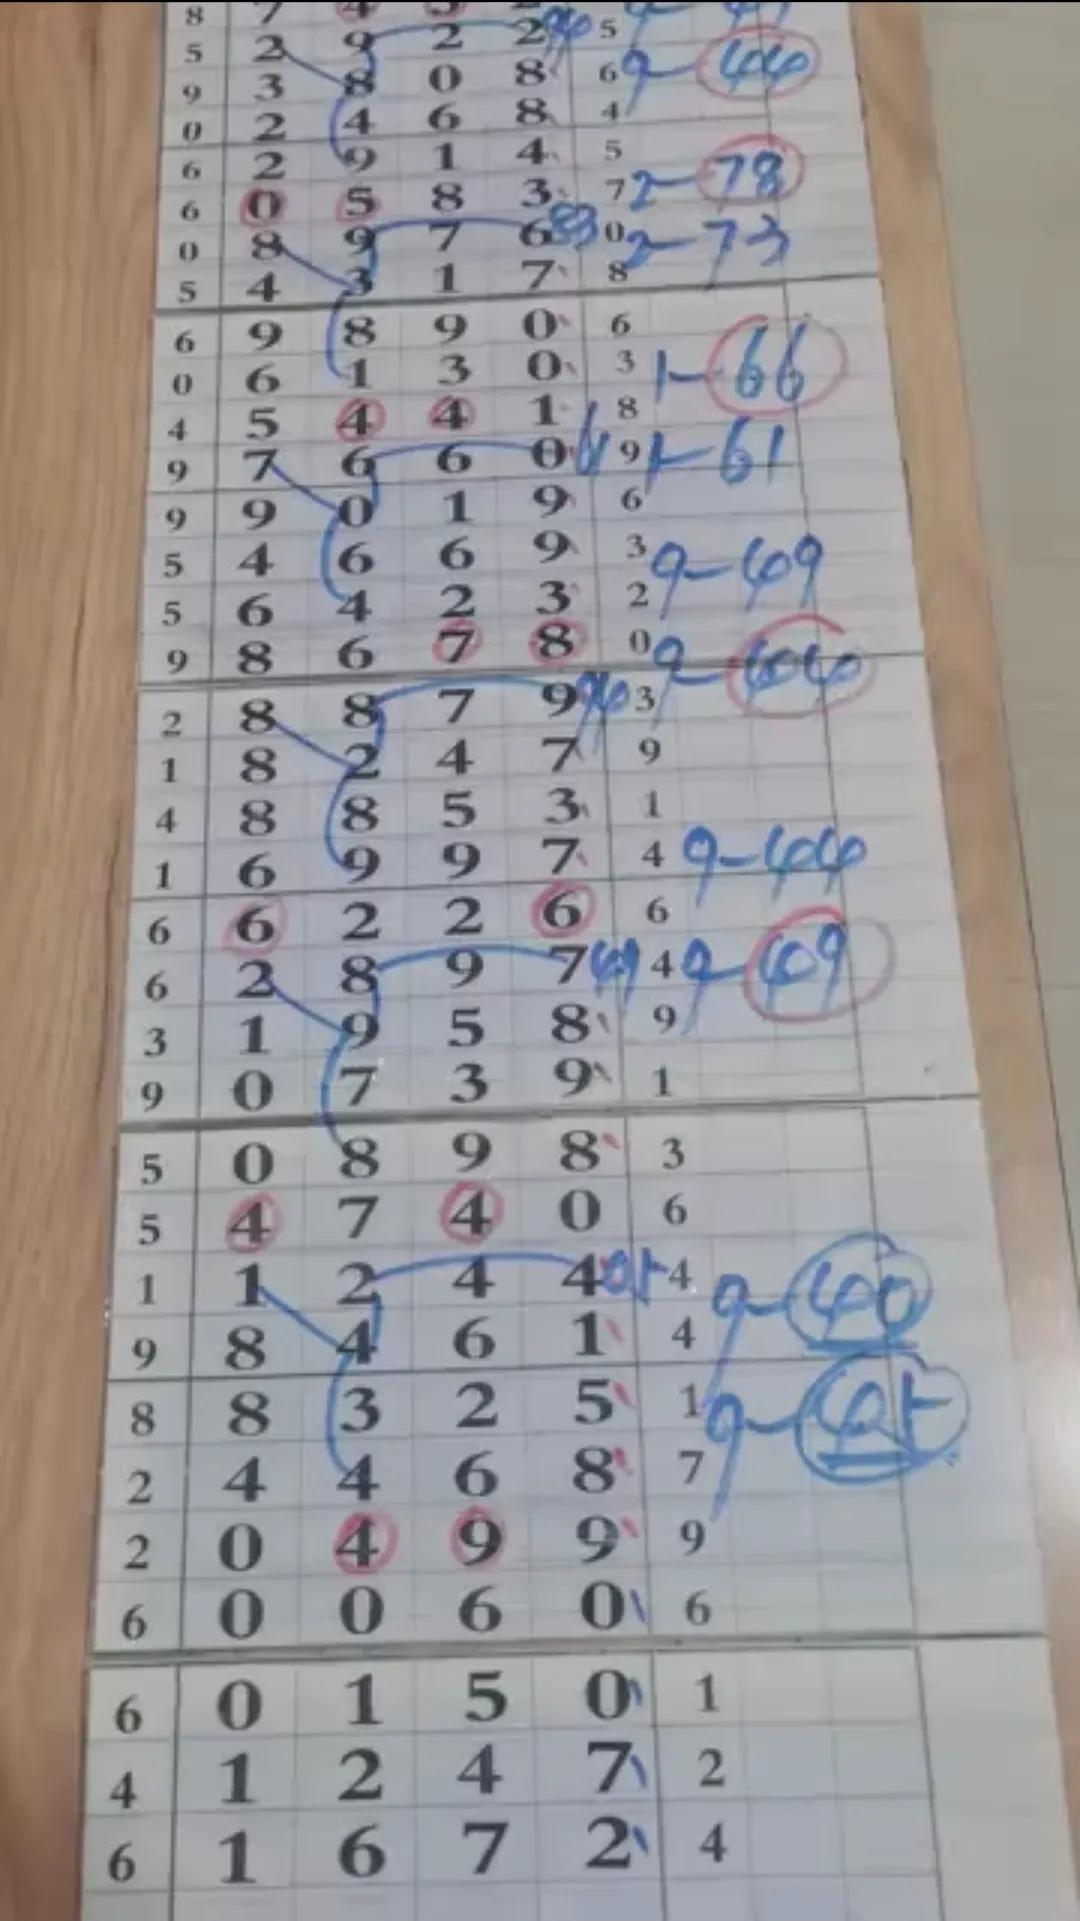 8 7 4
5 2 9 2 2 5
9 3 8 0 8 6 9-44
0 2 4 6 8 4
6 2 9 1 4 5
6 0 5 8 3 7 2-78
0 8 9 7 6 83 0 2-73
5 4 3 1 7 8
6 9 8 9 0 6
0 6 1 3 0 3 1-66
4 5 4 4 1 8
9 7 6 6 0 9 1-61
9 9 0 1 9 6
5 4 6 6 9 3 9-49
5 6 4 2 3 2
9 8 6 7 8 0 9-44
2 8 8 7 9 94 3
1 8 2 4 7 9
4 8 8 5 3 1
1 6 9 9 7 4 9-44
6 6 2 2 6 6
6 2 8 9 7 49 4 9-49
3 1 9 5 8 9
9 0 7 3 9 1
5 0 8 9 8 3
5 4 7 4 0 6
1 1 2 4 4 4 9-40
9 8 4 6 1 4
8 8 3 2 5 1
2 4 4 6 8 7
2 0 4 9 9 9
6 0 0 6 0 6
6 0 1 5 0 1
4 1 2 4 7 2
6 1 6 7 2 4